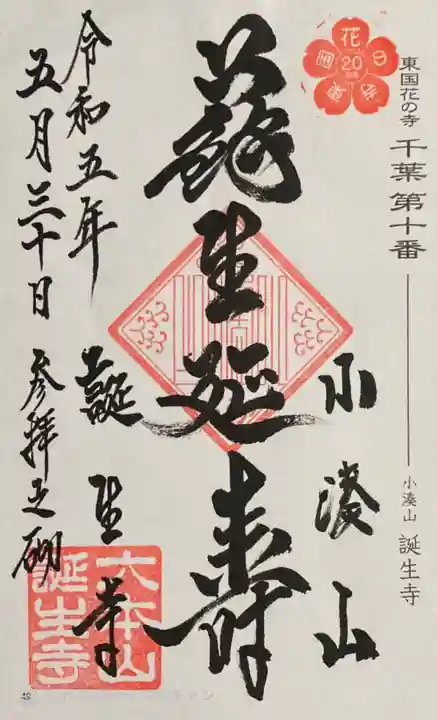 花
20
東国花の寺 千葉第十番
小湊山 誕生寺
小湊山
蘇生延寿
誕生寺
令和五年
五月三十日
参拝之砌
大本山
誕生寺